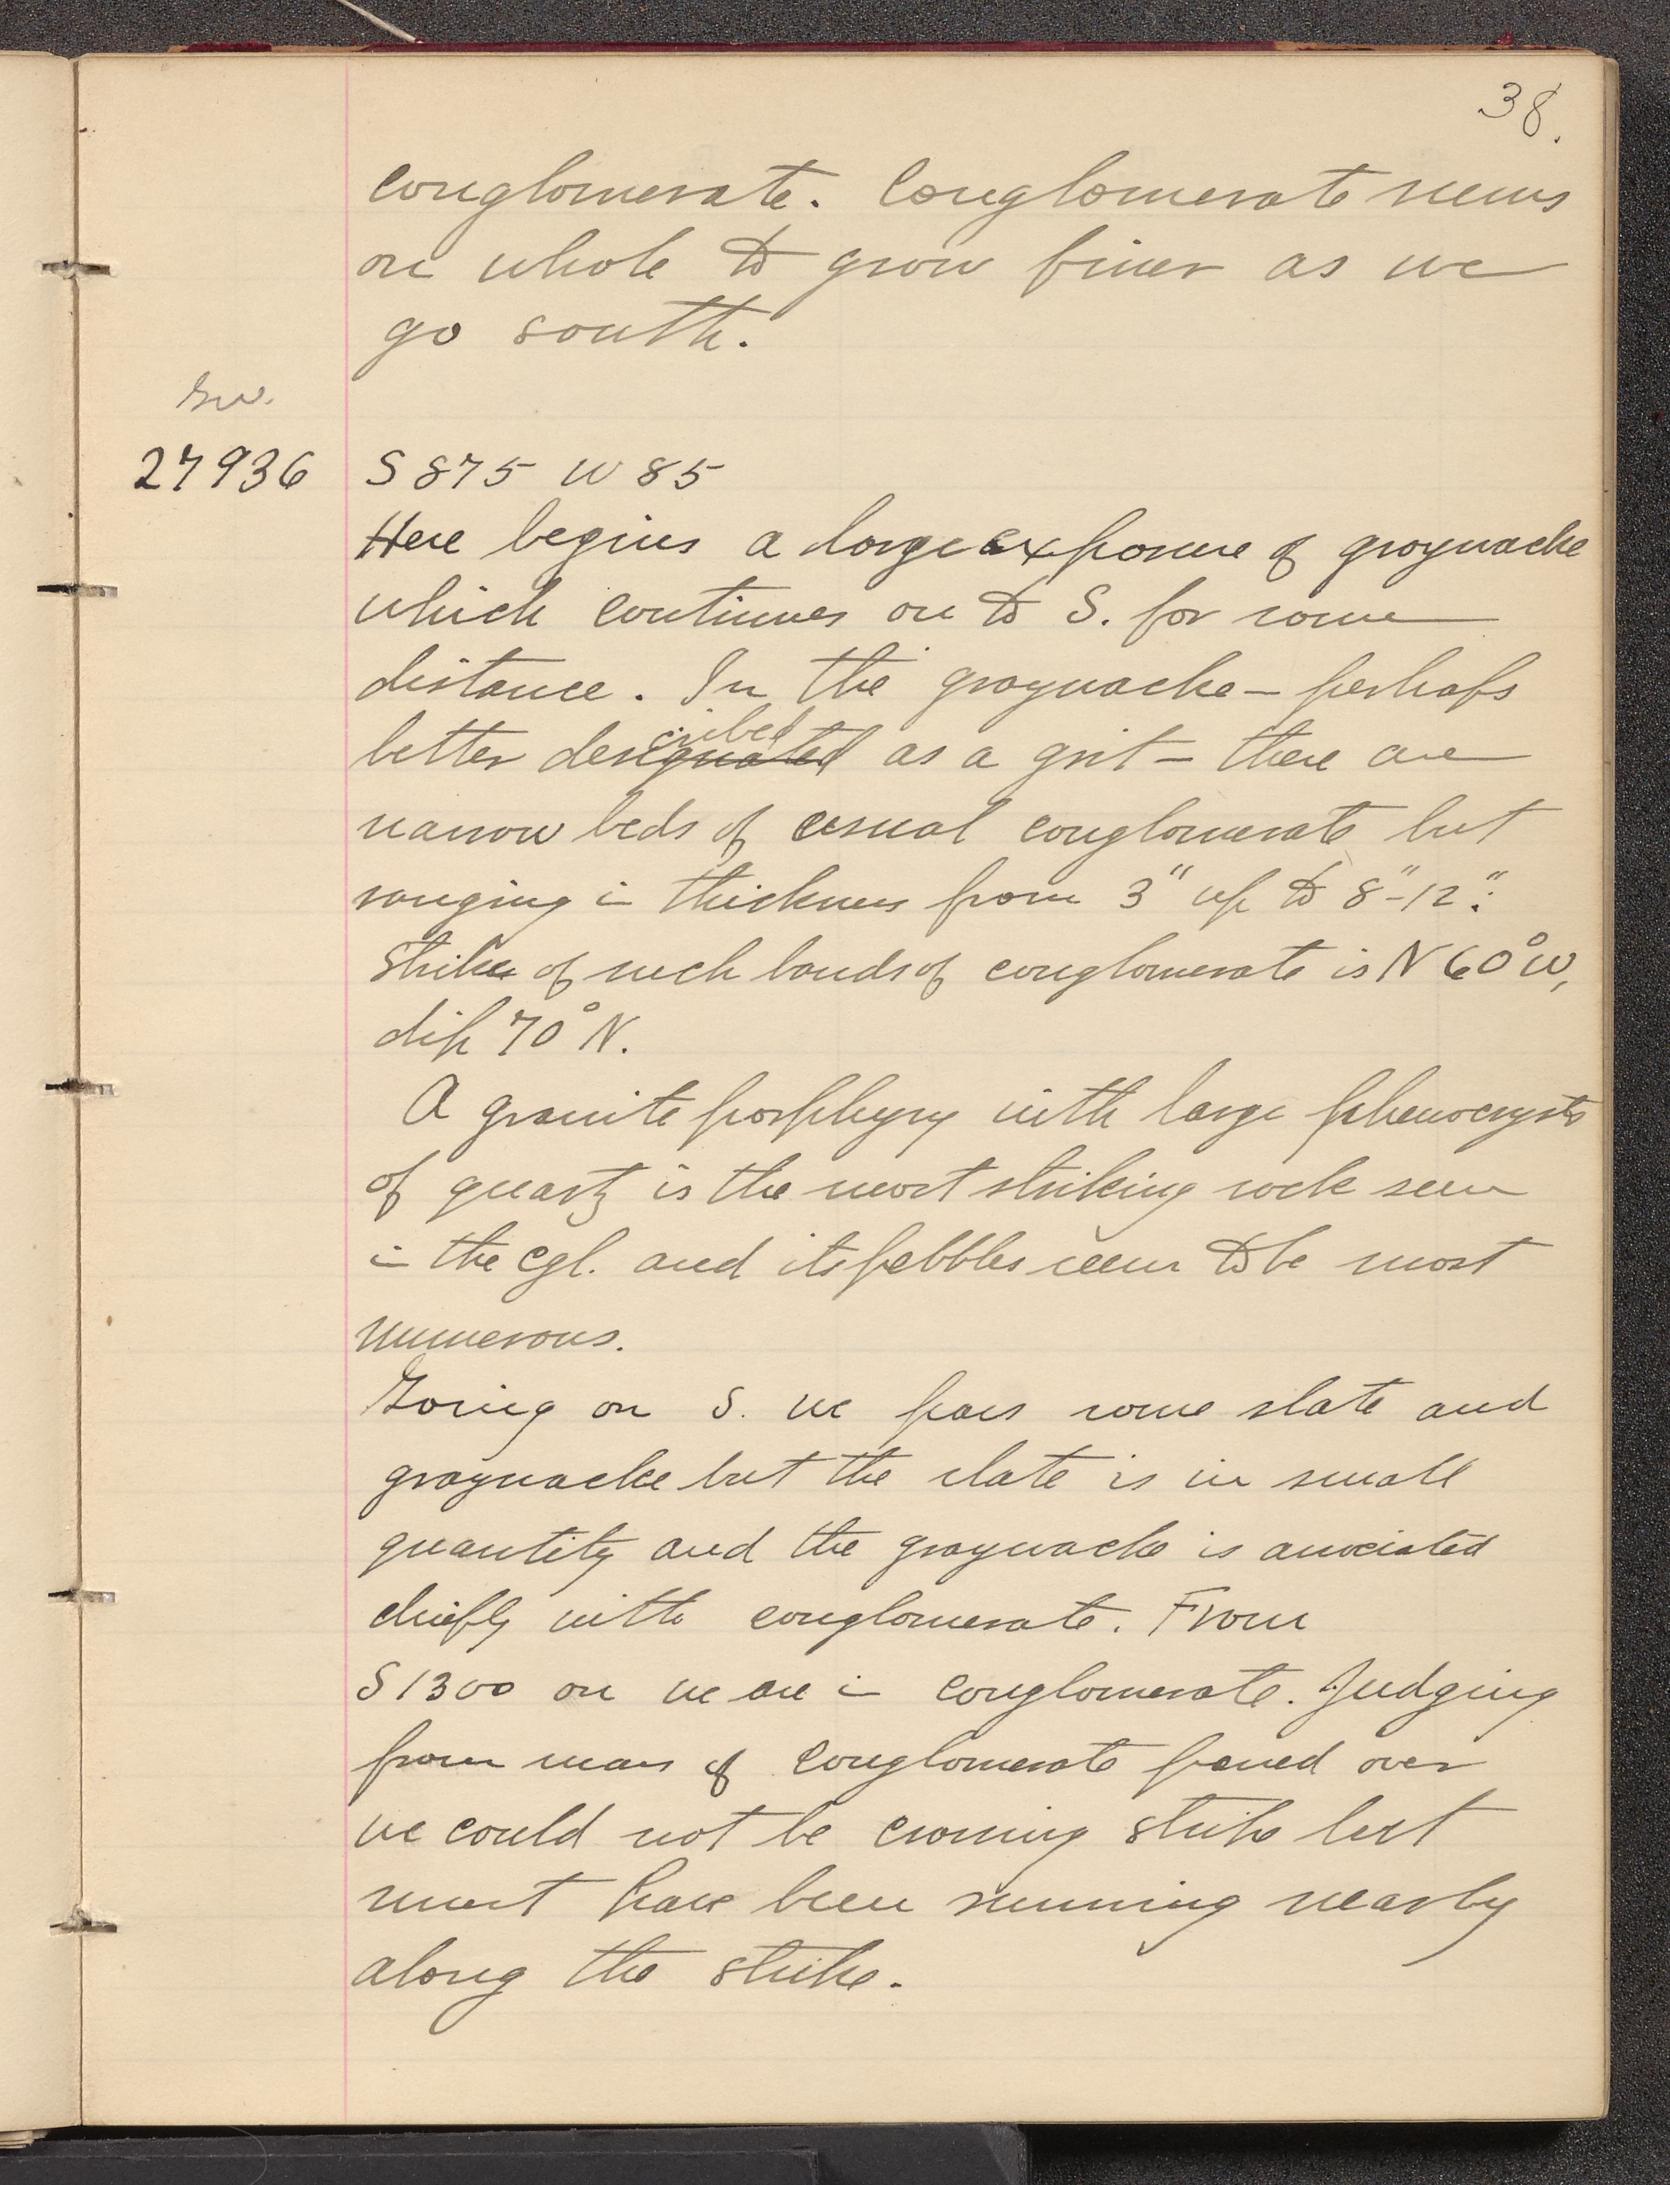 38.
conglomerate. Conglomerate seems
on whole to grow finer as we
go south.
Gw.
27936 S 875 W 85
Here begins a large exposure of graywacke
which continues on to S. for some
distance. In the graywacke — perhaps
cribed
better designated as a grit — there are
narrow beds of usual conglomerate but
ranging in thickness from 3" up to 8"-12".
Strike of such bands of conglomerate is N 60° W,
dip 70° N.
A granite porphyry with large phenocrysts
of quartz is the most striking rock seen
in the cgl. and its pebbles seem to be most
numerous.
Going on S. we pass some slate and
graywacke but the slate is in small
quantity and the graywacke is associated
chiefly with conglomerate. From
S 1300 on we are in conglomerate. Judging
from mass of conglomerate passed over
we could not be crossing strike but
must have been running nearly
along the strike.